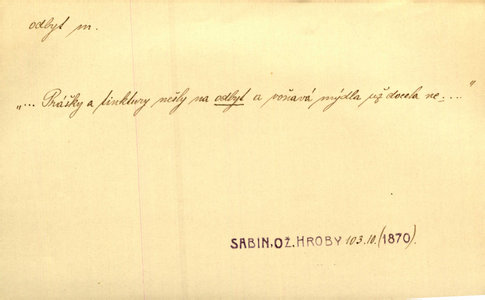 odbyt m.
„... Prášky a tinktury nešly na odbyt a voňavá mýdla už docela ne...."
SABIN, OŽ. HROBY 103.10. (1870).